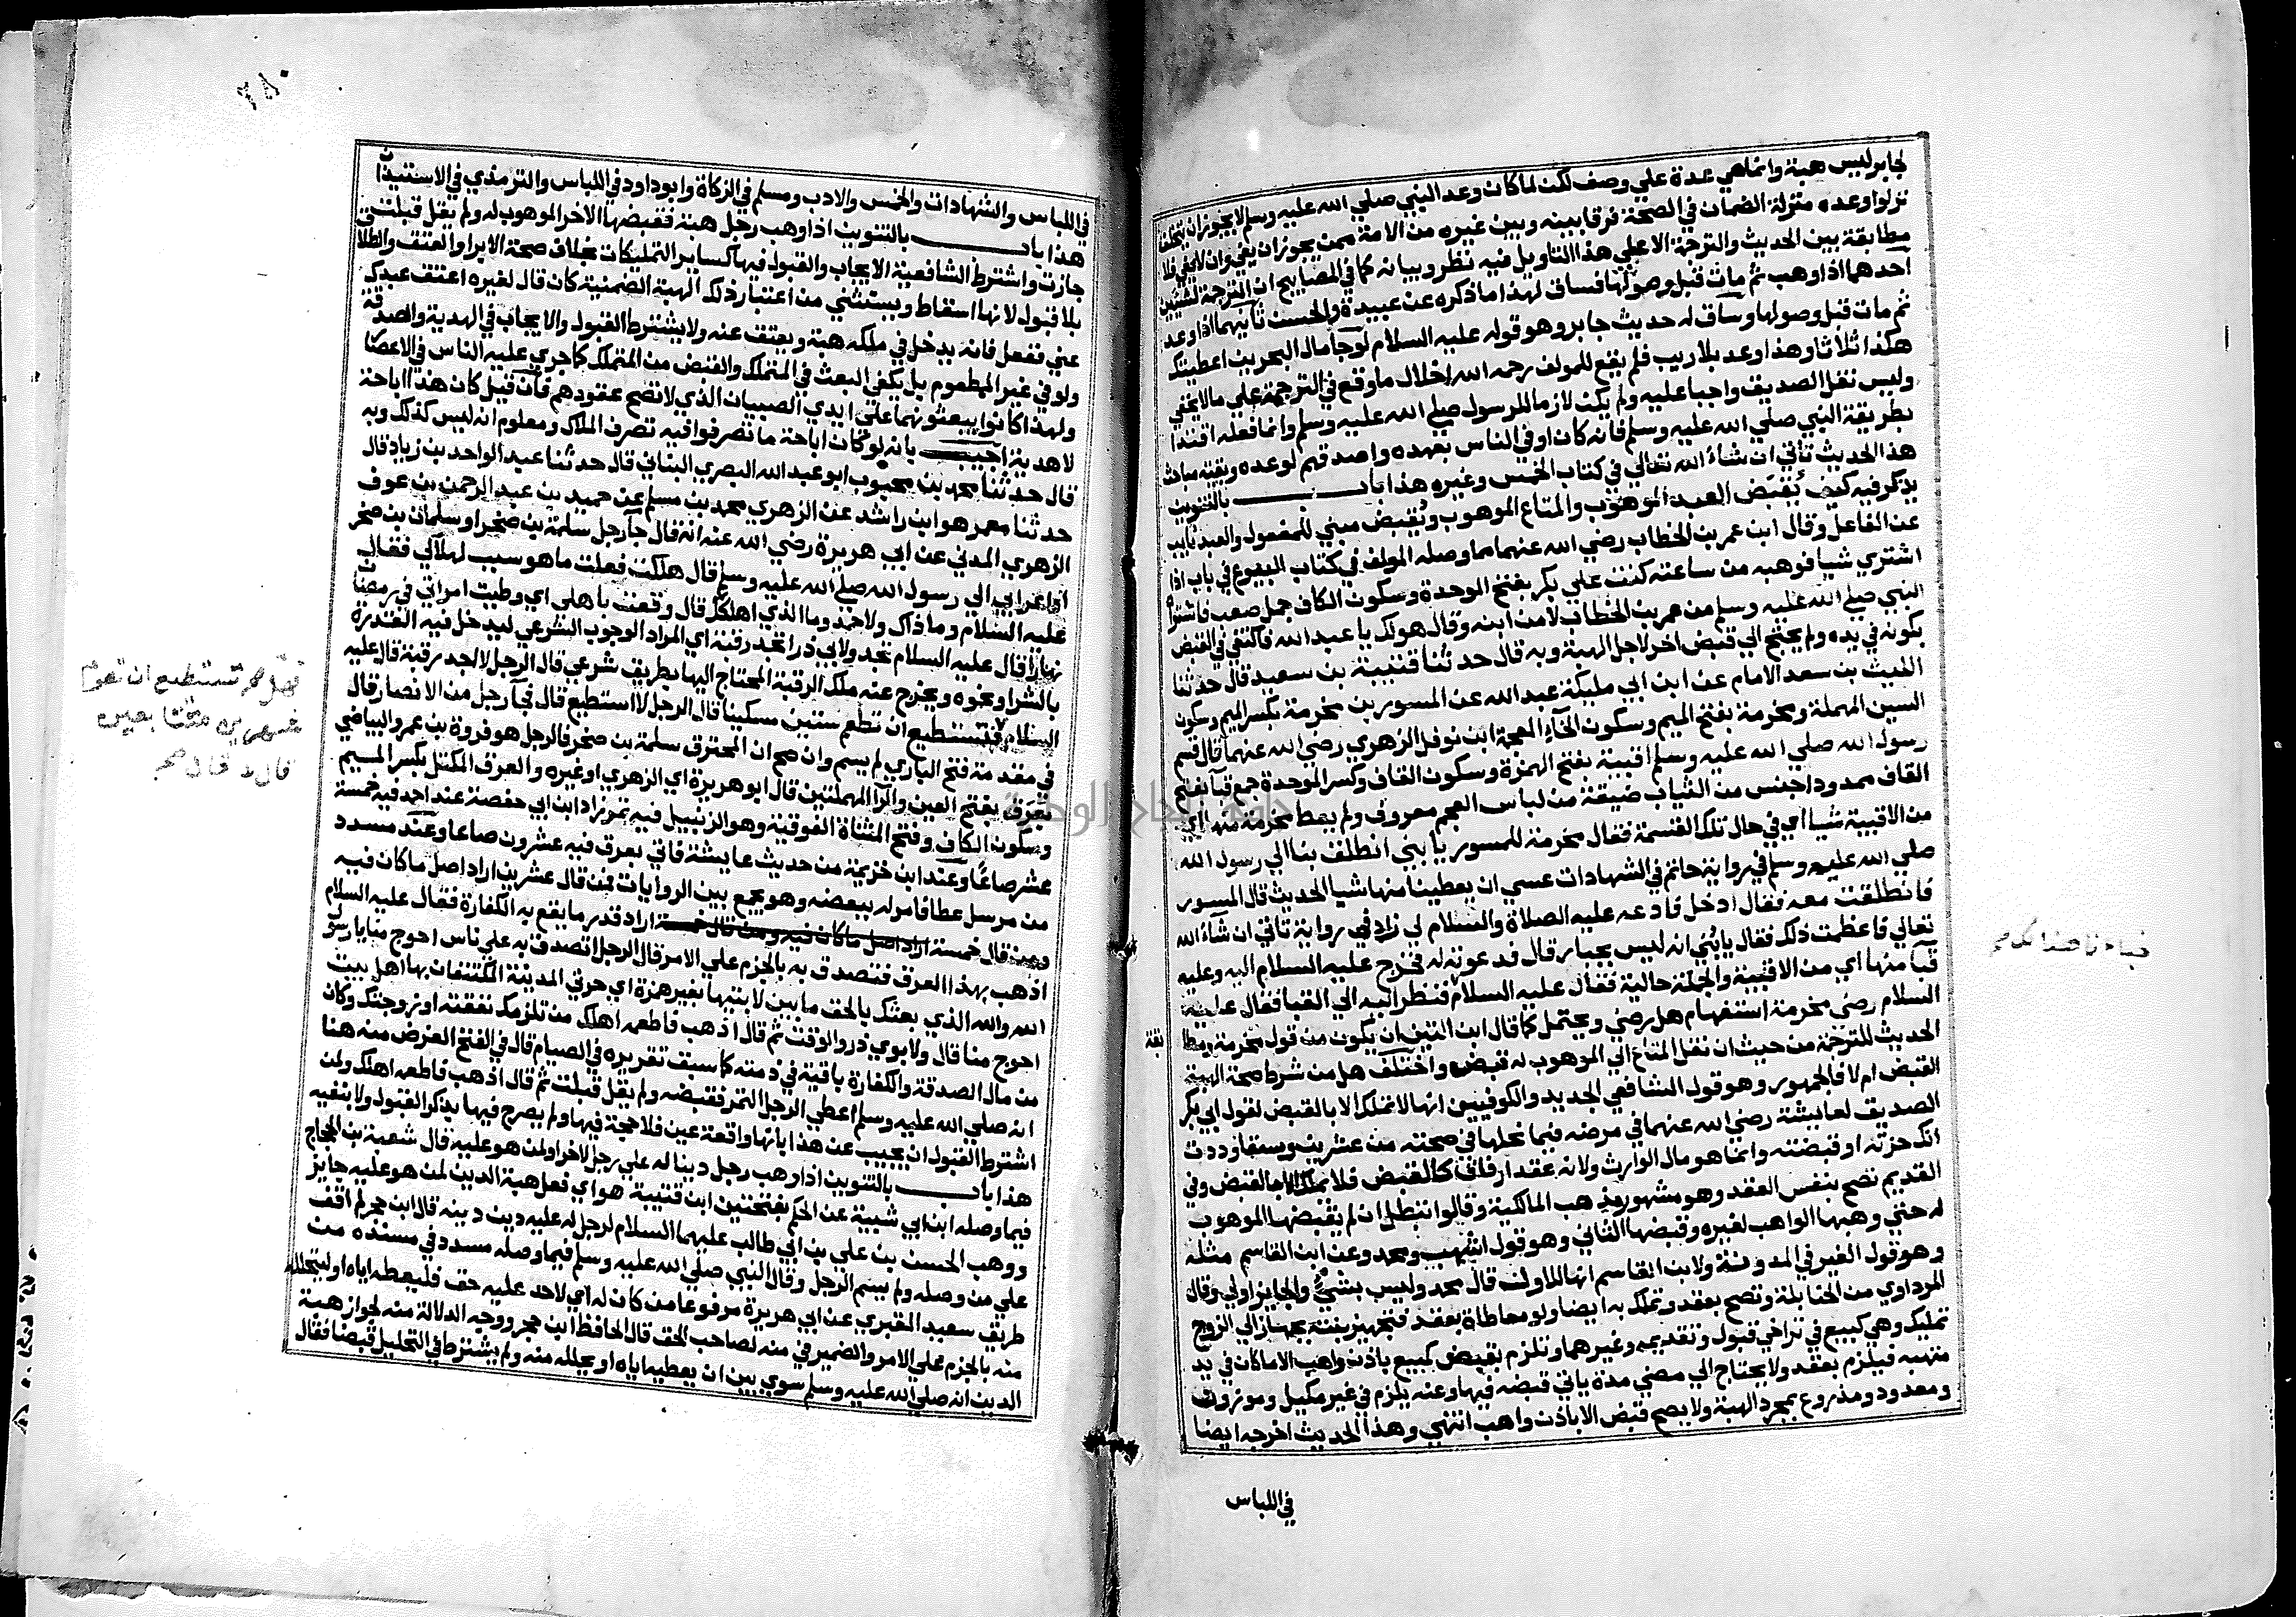 لجابر ليس هبة وانما هي عدة علي وصف لكن لما كان وعد النبي صلي الله عليه وسلم لا يجوز ان يخلف
نزلوا وعده منزلة الضمان في الصحة فرقا بينه وبين غيره من الامة ممن يجوز ان يفي وان لا يفي فلا
مطابقة بين الحديث والترجمة الا علي هذا التاويل فيه نظر وبيانه كما في المصابيح ان الترجمة لشيئين
احدهما اذا وهب ثم مات قبل وصولها فساق لهذا ما ذكره عن عبيدة والحسن ثانيهما اذا وعد
ثم مات قبل وصولها وساق له حديث جابر وهو قوله عليه السلام لو جا مال البحرين اعطيتك
هكذا ثلاثا وهذا وعد بلا ريب فلم يقع للمولف رحمه الله اخلال ما وقع في الترجمة علي ما لا يخفي
وليس نقل الصديق واجبا عليه ولم يكن لازما للرسول صلي الله عليه وسلم وانما فعله اقتدا
بطريقة النبي صلي الله عليه وسلم فانه كان اوفي الناس بعهده واصدقهم لوعده وبقية مباحث
هذا الحديث تاتي ان شاء الله تعالي في كتاب الخمس وغيره هذا باب بالتنوين
يذكر فيه كيف يُقبَض العبد الموهوب والمتاع الموهوب ويُقبض مبني للمفعول والعبد نايب
عن الفاعل وقال ابن عمر بن الخطاب رضي الله عنهما مما وصله المولف في كتاب البيوع في باب اذا
اشتري شيا فوهبه من ساعته كنت علي بكر بفتح الموحدة وسكون الكاف جمل صعب فاشتراه
النبي صلي الله عليه وسلم من عمر بن الخطاب لا من ابنه وقال هو لك يا عبد الله فاكتفي في القبض
بكونه في يده ولم يحتج الي قبض اخر لاجل الهبة وبه قال حدثنا قتيبة بن سعيد قال حدثنا
الليث بن سعد الامام عن ابن ابي مليكة عبد الله عن المسور بن مخرمة بكسر الميم وسكون
السين المهملة ومخرمة بفتح الميم وسكون الخآء المعجمة ابن نوفل الزهري رضي الله عنهما قال قسم
رسول الله صلي الله عليه وسلم اقبية بفتح الهمزة وسكون القاف وكسر الموحدة جمع قبآ بفتح
القاف ممدودا جنس من الثياب ضيقة من لباس العجم معروف ولم يعط مخرمة منه اي
من الاقبية شيا اي في حال تلك القسمة فقال مخرمة للمسور يا بني انطلق بنا الي رسول الله
صلي الله عليه وسلم في رواية حاتم في الشهادات عسي ان يعطينا منها شيا الحديث قال المسور
فانطلقت معه فقال ادخل فادعه عليه الصلاة والسلام لي زاد في رواية تاتي ان شآء الله
تعالي فاعظمت ذلك فقال يا بُنَي انه ليس بجبار قال فدعوته له فخرج عليه السلام اليه وعليه
قبآ منها اي من الاقبية والجملة حالية فقال عليه السلام فنظر اليه الي القبا فقال عليه
السلام رضي مخرمة استفهام هل رضي ويحتمل كما قال ابن التين ان يكون من قول مخرمة ومطا
بقة
الحديث للترجمة من حيث ان نقل المتاع الي الموهوب له قبض واختلف هل من شرط صحة الهبة
القبض ام لا فالجمهور وهو قول الشافعي الجديد والكوفيين انها لا تملك الا بالقبض لقول ابي بكر
الصديق لعايشة رضي الله عنهما في مرضه فيما نحلها في صحته من عشرين وسقا وددت
انك حزته او قبضته وانما هو مال الوارث ولانه عقد ارفاق كالقبض فلا تملك الا بالقبض وفي
القديم تصح بنفس العقد وهو مشهور مذهب المالكية وقالوا تبطل ان لم يقبضها الموهوب
له حتي وهبها الواهب لغيره وقبضها الثاني وهو قول اشهب ومحمد وعن ابن القاسم مثله
وهو قول الغير في المدونة ولابن القاسم انها للاول قال محمد وليس بشيء والجايز اولي وقال
المرداوي من الحنابلة وتصح بعقد وتملك به ايضا ولو معاطاة بعقد فتجهيز بنته بجهاز الي الزوج
تمليك وهي كبيع في تراخي قبول وتقديمه وغيرهما وتلزم بقبض كبيع باذن واهب الا ما كان في يد
متهبه فيلزم بعقد ولا يحتاج الي مضي مدة ياتي قبضه فيها وعنه يلزم في غير مكيل وموزون
ومعدود ومذروع بمجرد الهبة ولا يصح قبض الا باذن واهب انتهي وهذا الحديث اخرجه ايضا
في اللباس
٢٨٠
في اللباس والشهادات والخمس والادب ومسلم في الزكاة وابو داود في اللباس والترمذي في الاستيذان
هذا باب بالتنوين اذا وهب رجل هبة فقبضها الاخر الموهوب له ولم يقل قبلت
جازت واشترط الشافعية الايجاب والقبول فيها كساير التمليكات بخلاف صحة الابرا والعتق والطلاق
بلا قبول لانها اسقاط ويستثني من اعتبار ذلك الهبة الضمنية كان قال لغيره اعتق عبدك
عني ففعل فانه يدخل في ملكه هبة ويعتق عنه ولا يشترط القبول والايجاب في الهدية والصدقة
ولو في غير المطعوم بل يكفي البعث في المتملك والقبض من المتملك كما جري عليه الناس في الاعصار
ولهذا كانوا يبعثونها علي ايدي الصبيان الذي لا تصح عقودهم فان قيل كان هذا اباحة
لا هدية اجيب بانه لو كان اباحة ما تصرفوا فيه تصرف الملاك ومعلوم انه ليس كذلك وبه
قال حدثنا محمد بن محبوب ابو عبد الله البصري البناني قال حدثنا عبد الواحد بن زياد قال
حدثنا معمر هو ابن راشد عن الزهري محمد بن مسلم عن حميد بن عبد الرحمن بن عوف
الزهري المدني عن ابي هريرة رضي الله عنه انه قال جآ رجل سلمة بن صخر او سلمان بن صخر
او اعرابي الي رسول الله صلي الله عليه وسلم قال هلكت فعلت ما هو سبب لهلاكي فقال
عليه السلام وما ذاك ولاحمد وما الذي اهلكك قال وقعت باهلي اي وطيت امراتي في رمضان
نهارا قال عليه السلام تجد ولابي ذر اتجد رقبة اي المراد الوجوب الشرعي ليدخل فيه القدرة
بالشرا ونحوه ويخرج عنه ملك الرقبة المحتاج اليها بطريق شرعي قال الرجل لا اجد رقبة قال عليه
السلام فتستطيع ان تطعم ستين مسكينا قال الرجل لا استطيع قال فجآ رجل من الانصار قال
في مقدمة فتح الباري لم يسم وان صح ان المحترق سلمة بن صخر فالرجل هو فروة بن عمرو البياضي
بعرق بفتح العين والرآ المهملتين قال ابو هريرة اي الزهري او غيره والعرق المكتل بكسر الميم
وسكون الكاف وفتح المثناة الفوقية وهو الزنبيل فيه تمر زاد ابن ابي حفصة عند احمد فيه خمسة
عشر صاعا وعند ابن خزيمة من حديث عايشة فاتي بعرق فيه عشرون صاعا وعند مسدد
من مرسل عطا فامر له ببعضه وهو يجمع بين الروايات فمن قال عشرين اراد اصل ما كان فيه
ومن قال خمسة اراد اصل ما كان فيه ومن قال خمسة اراد قدر ما يقع به الكفارة فقال عليه السلام
اذهب بهذا العرق فتصدق به بالجزم علي الامر قال الرجل اتصدق به علي ناس احوج منا يا رسول
الله والله الذي بعثك بالحق ما بين لابتيها بغير همزة اي حرتي المدينة المكتنفان بها اهل بيت
احوج منا قال ولابوي ذر والوقت ثم قال اذهب فاطعمه اهلك من تلزمك نفقته او زوجتك وكان
من مال الصدقة والكفارة باقية في ذمته كما سبق تقريره في الصيام قال في الفتح الغرض منه هنا
انه صلي الله عليه وسلم اعطي الرجل التمر فقبضه ولم يقل قبلت ثم قال اذهب فاطعمه اهلك ولمن
اشترط القبول ان يجيب عن هذا بانها واقعة عين فلا حجة فيها ولم يصرح فيها بذكر القبول ولا بنفيه
هذا باب بالتنوين اذا وهب رجل دينا له علي رجل لاخر او لمن هو عليه قال شعبة بن الحجاج
فيما وصله ابن ابي شيبة عن الحكم بفتحتين ابن قتيبة هو اي فعل هبة الدين لمن هو عليه جايز
ووهب الحسن بن علي بن ابي طالب عليهما السلام لرجل له عليه دين دينه قال ابن حجر لم اقف
علي من وصله ولم يسم الرجل وقال النبي صلي الله عليه وسلم فيما وصله مسدد في مسنده من
طريق سعيد المقبري عن ابي هريرة مرفوعا من كان له اي لاحد عليه حق فليعطه اياه او ليتحلله
منه بالجزم علي الامر والضمير في منه لصاحب الحق قال الحافظ ابن حجر ووجه الدلالة منه لجواز هبة
الدين انه صلي الله عليه وسلم سوي بين ان يعطيه اياه او يحلله منه ولم يشترط في التحليل قبضا فقال
تستطيع ان تصوم
شهرين متتابعين
قال لا قال